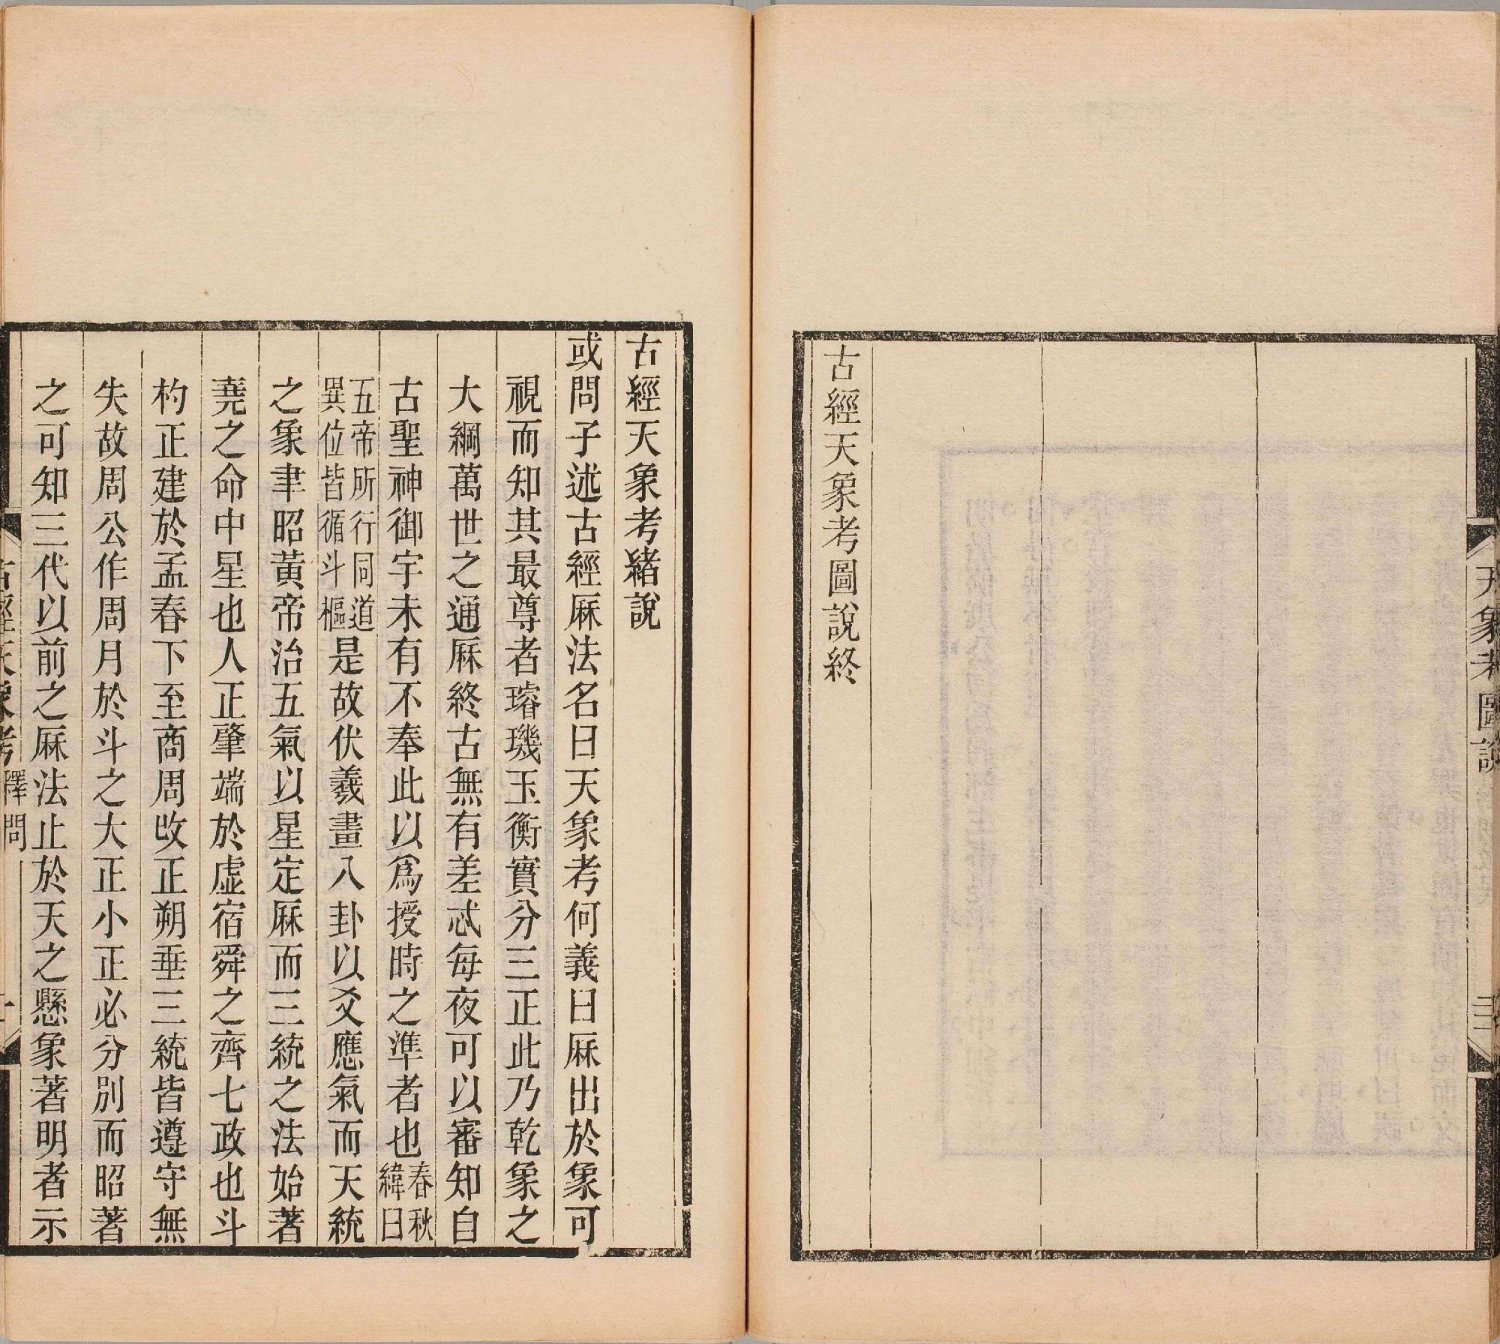 天象考圖說
三
古經天象考圖說終
古經天象考緒說
或問子述古經厤法名曰天象考何義曰厤出於象可
視而知其最尊者璿璣玉衡實分三正此乃乾象之
大綱萬世之通厤終古無有差忒每夜可以審知自
古聖神御宇未有不奉此以爲授時之準者也春秋緯曰
五帝所行同道異位皆循斗樞是故伏羲畫八卦以爻應氣而天統
之象聿昭黃帝治五氣以星定厤而三統之法始著
堯之命中星也人正肇端於虛宿舜之齊七政也斗
杓正建於孟春下至商周改正朔垂三統皆遵守無
失故周公作周月於斗之大正小正必分別而昭著
之可知三代以前之厤法止於天之懸象著明者示
古經天象考
釋問